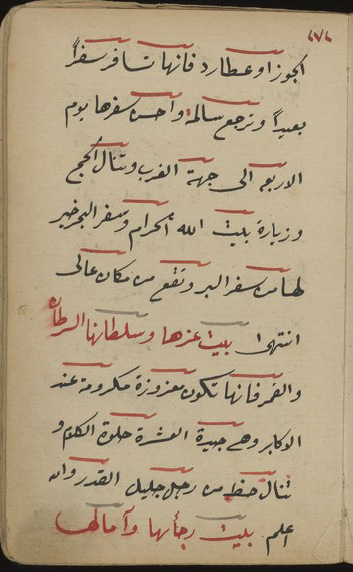 ١٧١
الجوزا وعطارد فانها تسافر سفرا
بعيدا وترجع سالمة واحسن سفرها يوم
الاربعه الى جهة الغرب وتنال الحج
وزيارة بيت الله الحرام وسفر البحر خير
لها من سفر البر وتقع من مكان عالى
انتهى بيت عزها وسلطانها السرطان
والقمر فانها تكون معزوزة مكرومة عند
الاكابر وهي جيدة العشرة حلوة الكلام و
تنال حظ من رجل جليل القدر والله
اعلم بيت رجائها وآمالها